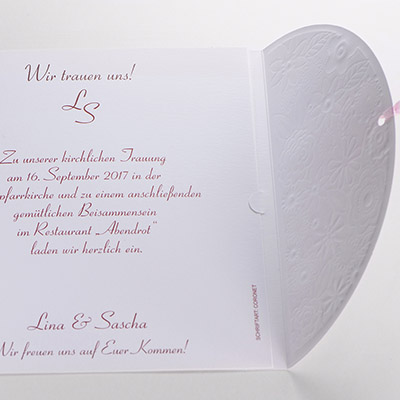 Wir trauen uns!
L
S
Zu unserer kirchlichen Trauung
am 16. September 2017 in der
pfarrkirche und zu einem anschließenden
gemütlichen Beisammensein
im Restaurant „Abendrot"
laden wir herzlich ein.
Lina & Sascha
Wir freuen uns auf Euer Kommen!
SCHRIFTART: CORONET